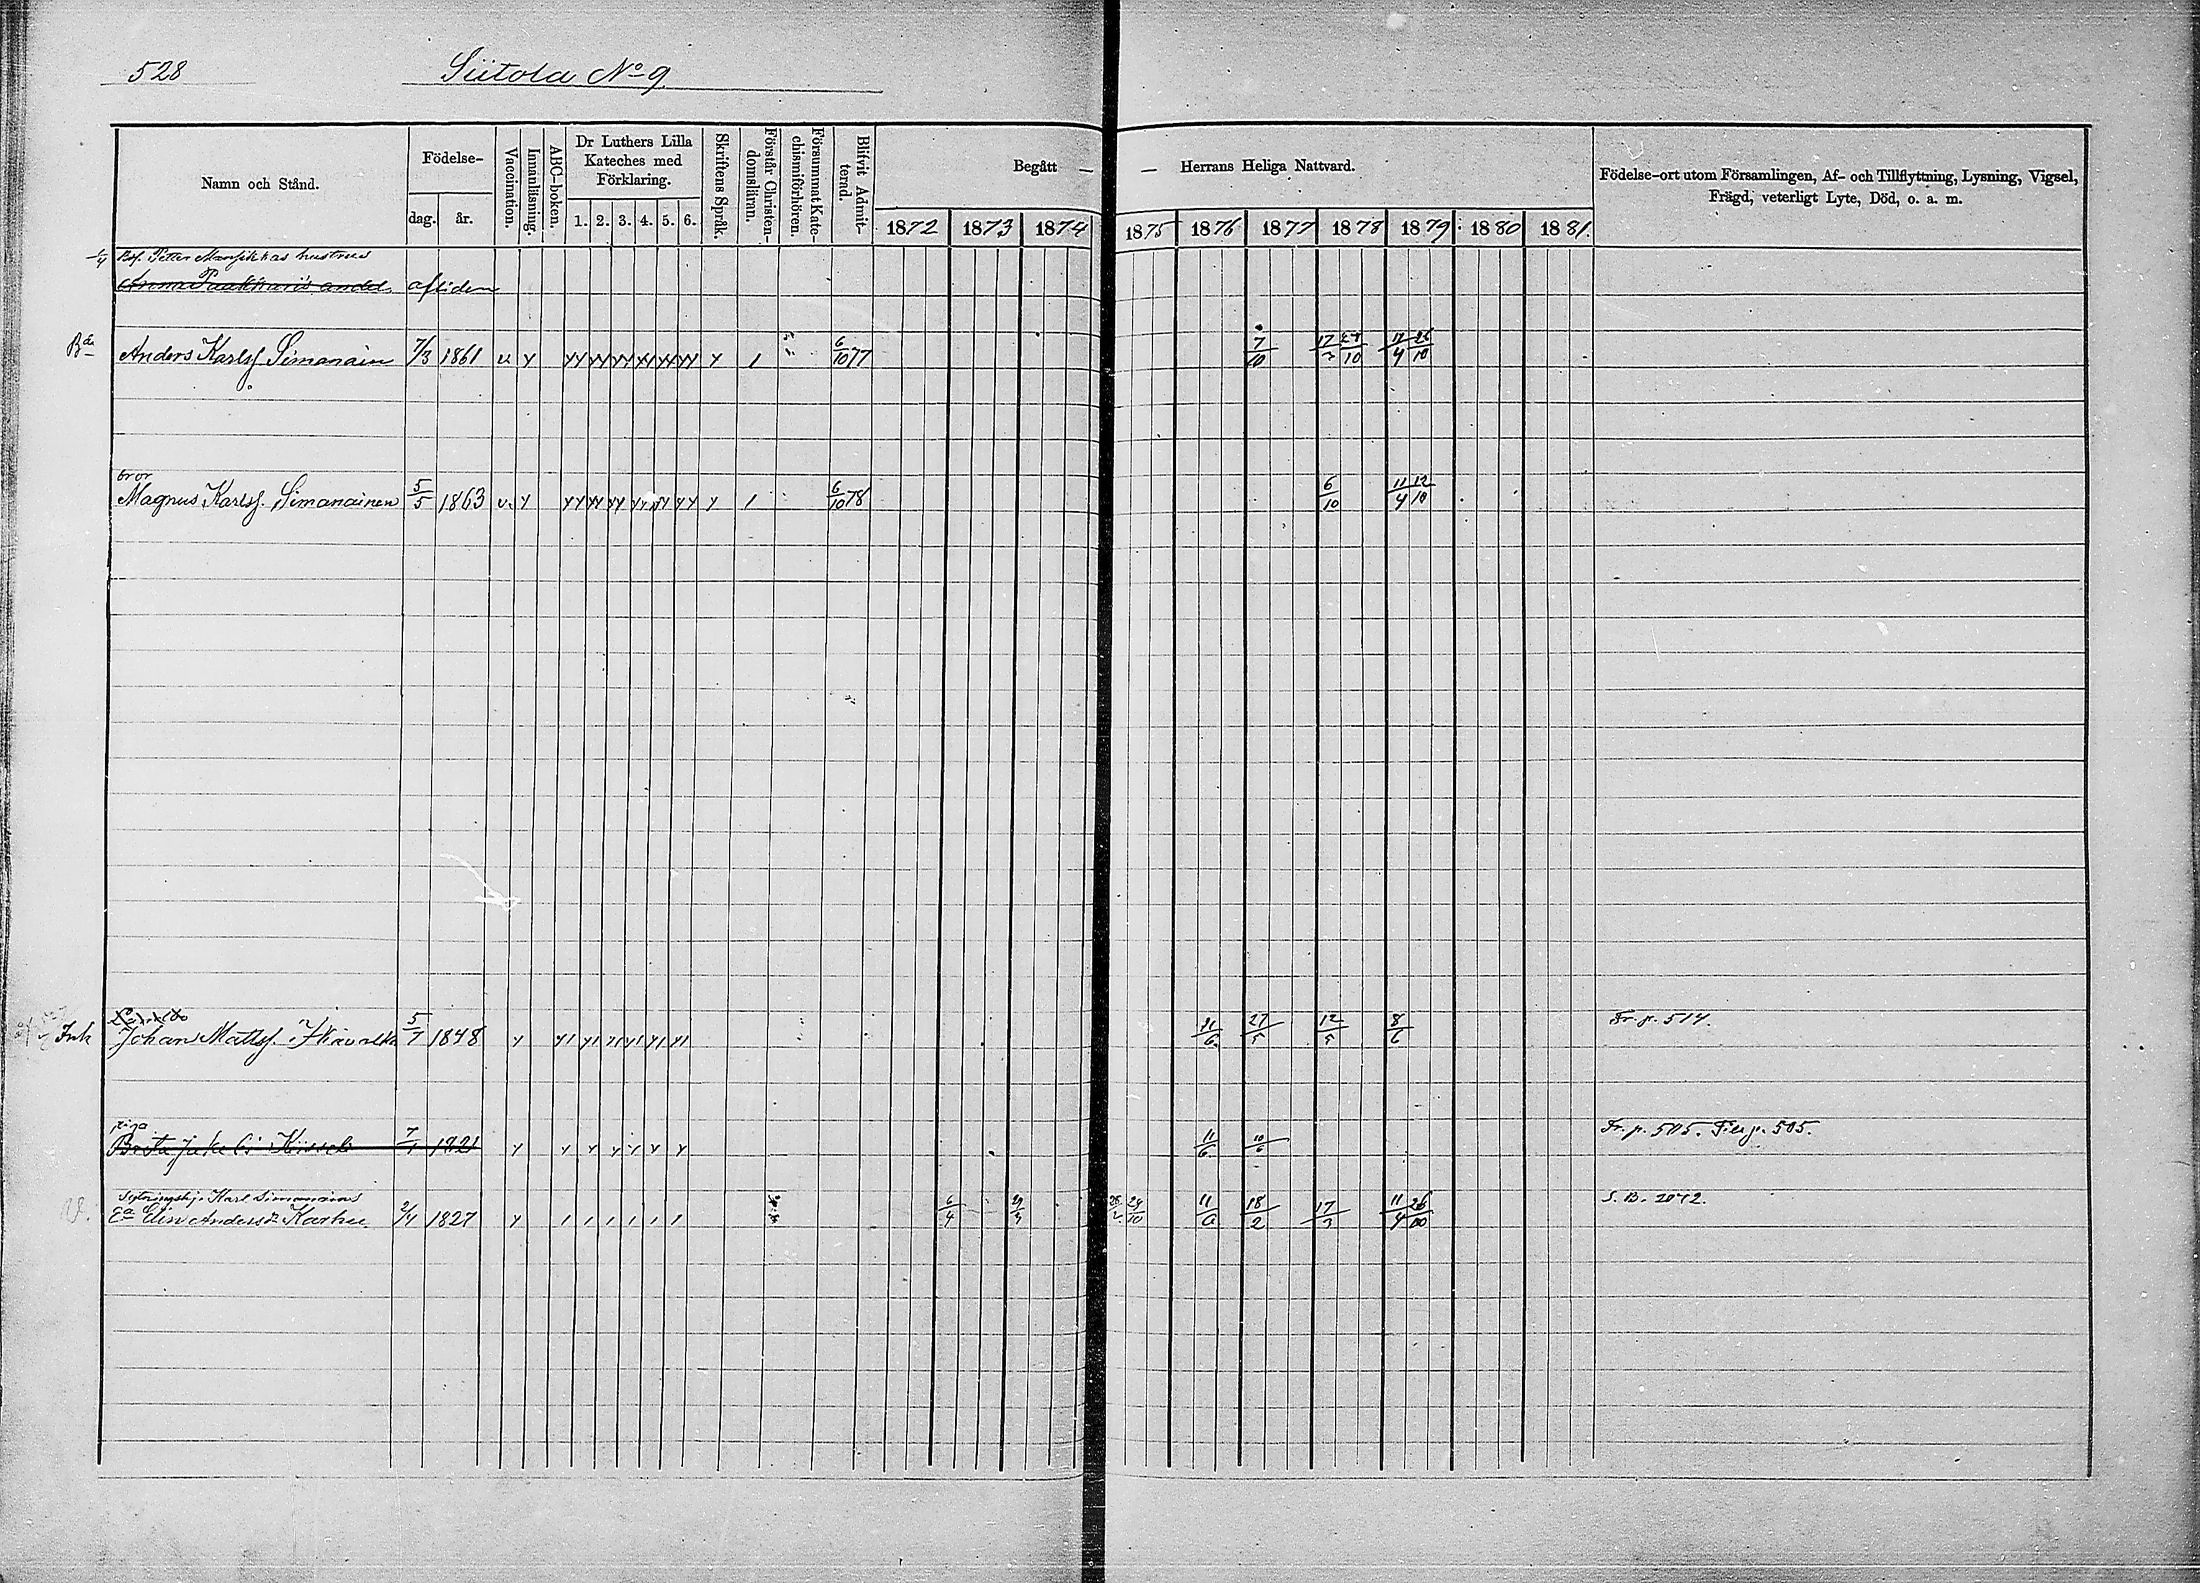 528 Siitola No 9.
Namn och Stånd. Födelse- dag. år. Vaccination. Innanläsning. ABC-boken. Dr Luthers Lilla Kateches med Förklaring. 1. 2. 3. 4. 5. 6. Skriftens Språk. Förstår Christendomsläran. Försummat Katechismiförhören. Blifvit Admitterad. Begått — — Herrans Heliga Nattvard. Födelse-ort utom Församlingen, Af- och Tillflyttning, Lysning, Vigsel, Frägd, veterligt Lyte, Död, o. a. m.
1872 1873 1874 1875 1876 1877 1878 1879 1880 1881
1/4 Bf. Petter hustrus
Anna andel afliden
Bde Anders Karlsf. Simanain 7/3 1861 v y yy yy yy yy yy yy y 1 6/10 77 7/10 17/3 27/10 12/4 26/10
bror
Magnus Karlsf. Simanainen 5/5 1863 v. y yy yy yy yy yy yy y 1 6/10 78 6/10 11/4 12/10
Inh Johan Mattsf. 5/7 1848 y y1 y1 y1 y1 y1 y1 11/6 27/5 12/5 8/6 Fr. p. 514.
piga
Brita 7/1 1821 y y y y y y y 11/6 10/6 Fr. p. 505. Till p. 505.
Karl Simanains
Ea Elin Andersdr Karhu 2/4 1827 y / / / / / / 6/4 29/3 28/2 24/10 11/6 18/2 17/3 11/4 26/10 S. B. 2072.